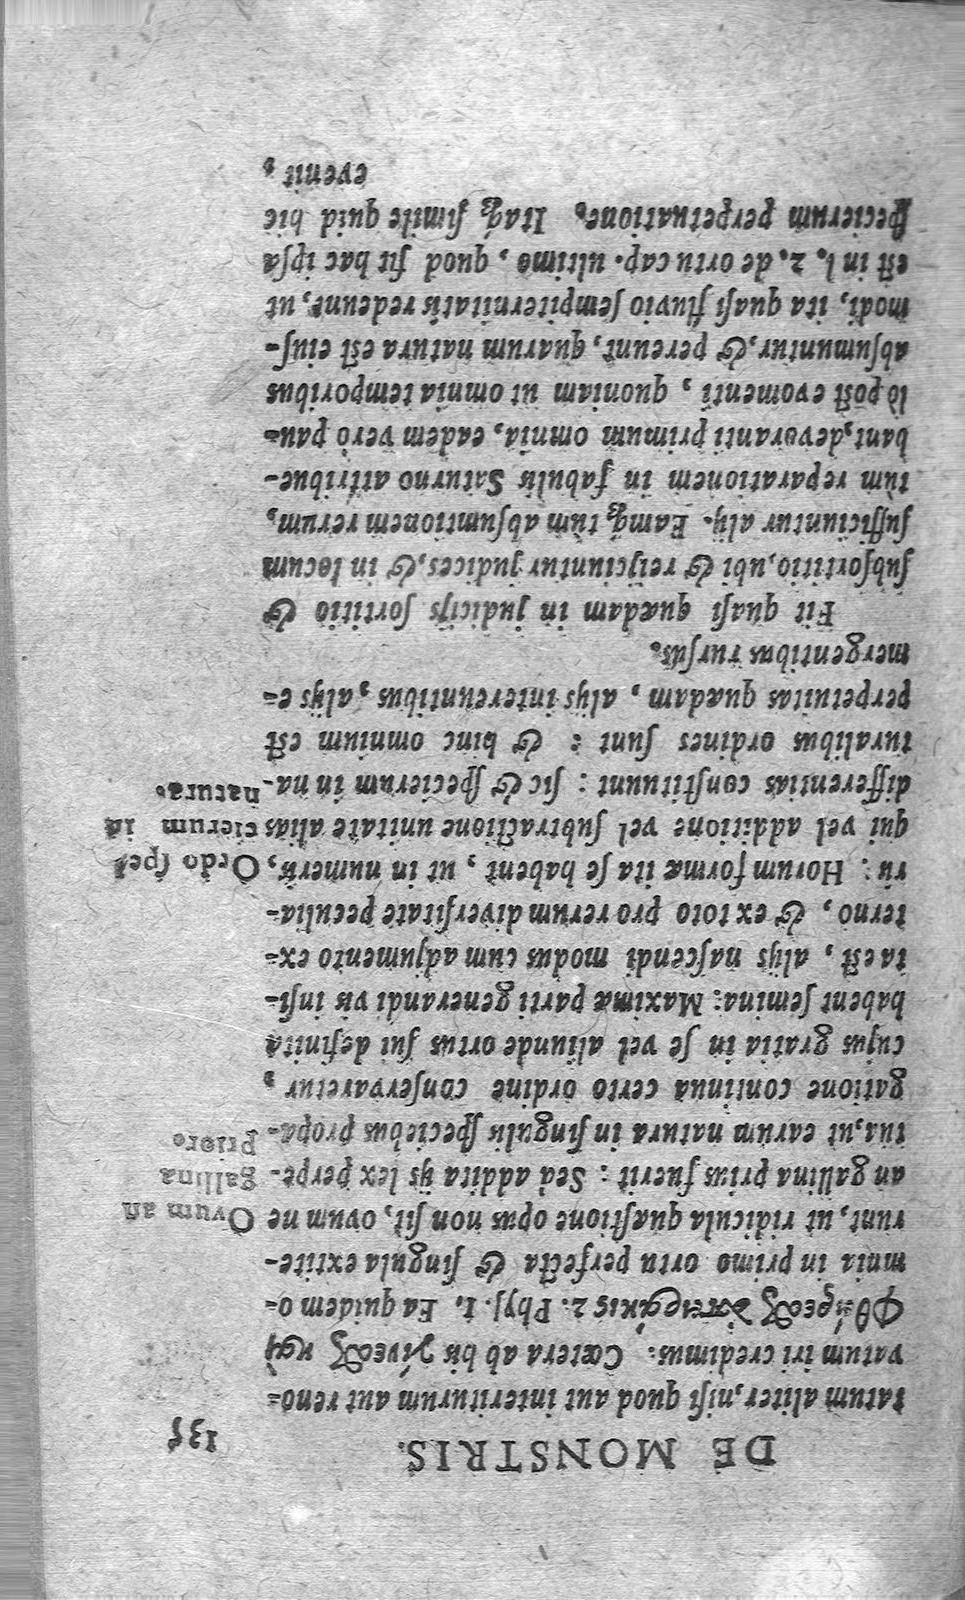 DE MONSTRIS. 135
tatum aliter, niſi quod aut interiturum aut reno-
vatum iri credimus: Cætera ab his γίνεϑ καὶ
Φθείρεϑ 2. Phyſ. 1. Ea quidem o-
mnia in primo ortu perfecta & ſingula extite-
runt, ut ridicula quæſtione opus non ſit, ovum ne
an gallina prius fuerit: Sed addita ijs lex perpe-
tua, ut earum natura in ſingulis ſpeciebus propa-
gatione continua certo ordine conſervaretur,
cujus gratia in ſe vel aliunde ortus ſui definita
habent ſemina: Maximæ parti generandi vis inſi-
ta eſt, alijs naſcendi modus cum adjumento ex-
terno, & ex toto pro rerum diverſitate peculia-
ris: Horum formæ ita ſe habent, ut in numeris,
qui vel additione vel ſubtractione unitate alias
differentias conſtituunt: ſic & ſpecierum in na-
turalibus ordines ſunt: & hinc omnium eſt
perpetuitas quædam, alijs intereuntibus, alijs e-
mergentibus rurſus.
Fit quaſi quædam in judicijs ſortitio &
ſubſortitio, ubi & reijciuntur judices, & in locum
ſufficiuntur alij. Eamq́; tùm abſumtionem rerum,
tùm reparationem in fabulis Saturno attribue-
bant, devoranti primum omnia, eadem verò pau-
lò pòſt evomenti, quoniam ut omnia temporibus
abſumuntur, & pereunt, quarum natura eſt eiuſ-
modi, ita quaſi fluvio ſempiternitatis redeunt, ut
eſt in l. 2. de ortu cap. ultimo, quod fit hac ipſa
ſpecierum perpetuatione. Itaq́; ſimile quid hic
evenit,
Ovum añ
gallina
priore
Ordo ſpe-
cierum iñ
natura.